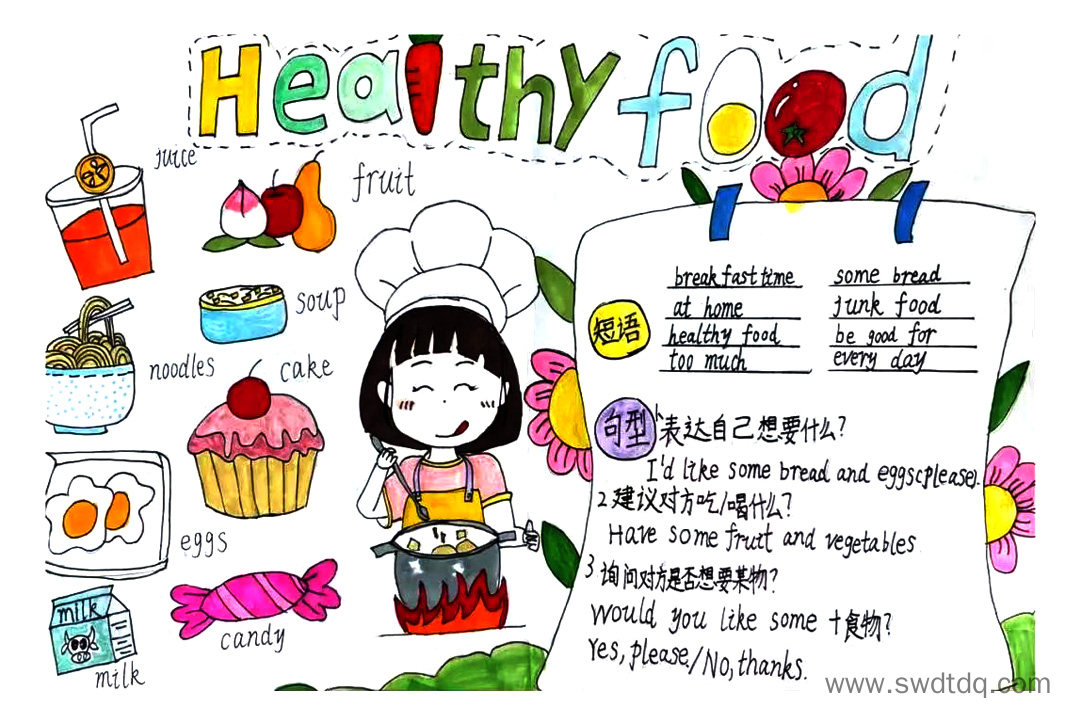 Healthy food
juice
fruit
soup
noodles
cake
eggs
candy
milk
milk
短语
breakfast time some bread
at home junk food
healthy food be good for
too much every day
句型
1表达自己想要什么?
I'd like some bread and eggs(please).
2建议对方吃/喝什么?
Have some fruit and vegetables
3询问对方是否想要某物?
Would you like some +食物?
Yes, please./No, thanks.
www.swdtdq.com